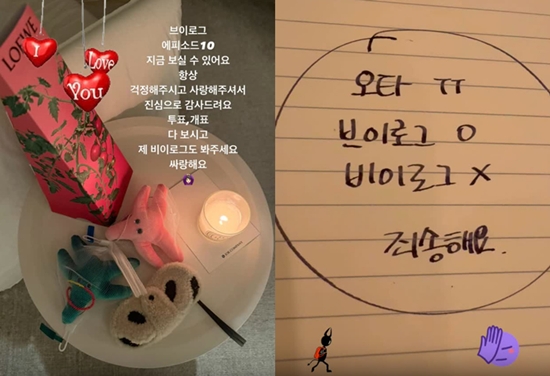 LOEWE
I
Love
You
브이로그
에피소드10
지금 보실 수 있어요
항상
걱정해주시고 사랑해주셔서
진심으로 감사드려요
투표,개표
다 보시고
제 비이로그도 봐주세요
싸랑해요
오타 ㅠ
브이로그 O
비이로그 X
죄송해요.